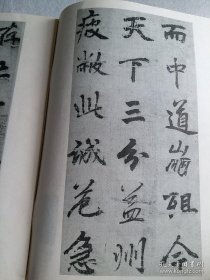 而中道崩殂今
天下三分益州
疲敝此誠危急
存